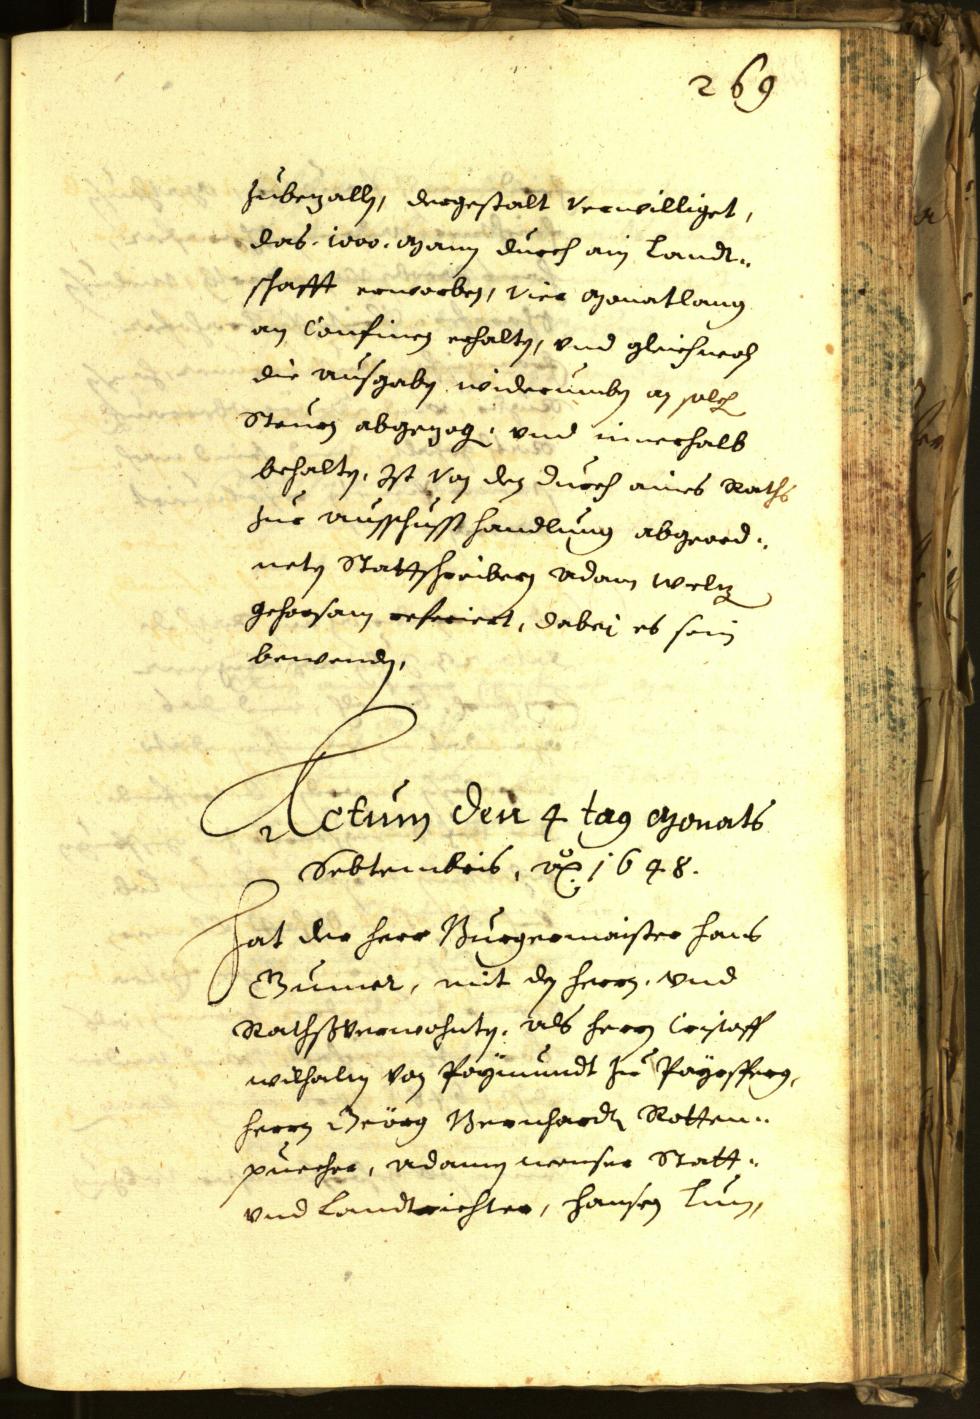 269
zubezalln, dergestalt verwilliget,
das 1000 Mann durch ain Landt„
schafft erworben, vier Monatlang
an Confinen erhalten, und gleichwol
die ausgaben widerumben an solch
Steurn abgezogen, und innerhalb
behalten, Ist von den durch aines Raths
zur ausschuss handlung abgeord„
neten Stattschreibern Adam Weltz
gehorsam referiert, dabei es sein
bewenden,
Actum den 4 tag Monats
Septembris, Ao 1648.
Hat der Herr Burgermaister Hans
Gumer, mit den herrn und
Rathsverwohnten, als herrn Cristoff
Wilhalm von Paymundt zu Payrsperg,
herrn Geörg Bernhardt Rotten„
puecher, Adamen Statt„
und Landtrichter, Hansen Lun,